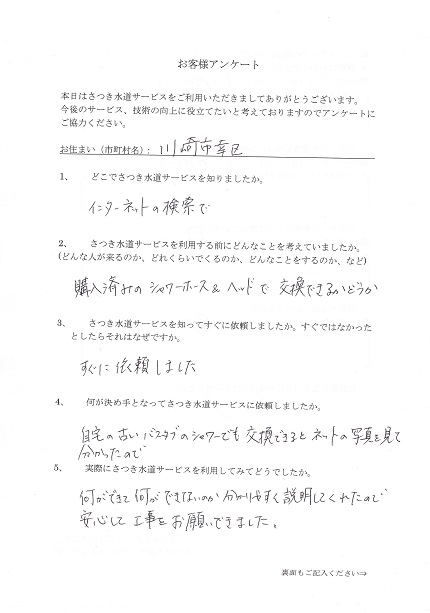 お客様アンケート
本日はさつき水道サービスをご利用いただきましてありがとうございます。
今後のサービス、技術の向上に役立てたいと考えておりますのでアンケートに
ご協力ください。
お住まい（市町村名）： 川崎市幸区
1、 どこでさつき水道サービスを知りましたか。
インターネットの検索で
2、 さつき水道サービスを利用する前にどんなことを考えていましたか。
(どんな人が来るのか、どれくらいでくるのか、どんなことをするのか、など)
購入済みのシャワーホース&ヘッドで交換できるかどうか
3、 さつき水道サービスを知ってすぐに依頼しましたか。すぐではなかった
としたらそれはなぜですか。
すぐに依頼しました
4、 何が決め手となってさつき水道サービスに依頼しましたか。
自宅の古いバスタブのシャワーでも交換できるとネットの写真を見て
分かったので
5、 実際にさつき水道サービスを利用してみてどうでしたか。
何ができて何ができないのか分かりやすく説明してくれたので
安心して工事をお願いできました。
裏面もご記入ください⇒